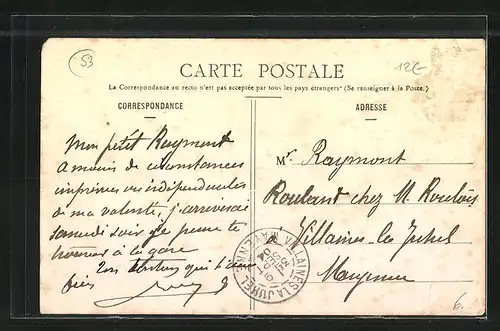 53
12€
CARTE POSTALE
La Correspondance au recto n'est pas acceptée par tous les pays étrangers* (Se renseigner à la Poste.)
CORRESPONDANCE
Mon petit Raymont
A moins de circonstances
imprévues indépendantes
de ma volonté, j'arriverai
samedi soir je pense te
trouver à la gare
Ton qui t'aime
bien
ADRESSE
Mr. Raymont
Rouland chez M.
à Villaines la Juhel
Mayenne
VILLAINES LA JUHEL
MAYENNE
6.